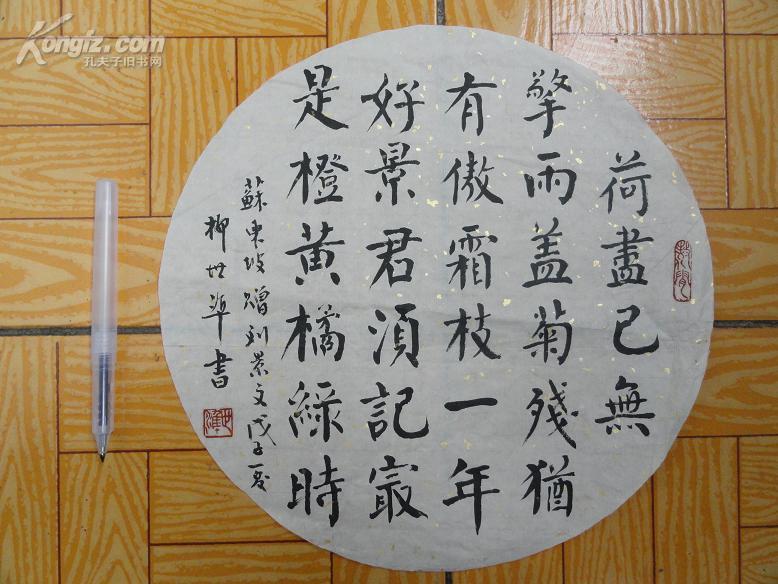 荷盡已無
擎雨盖菊残猶
有傲霜枝一年
好景君須記㝡
是橙黄橘緑時
蘇東坡赠刘景文戊子夏
柳世準書
Kongfz.com
孔夫子旧书网